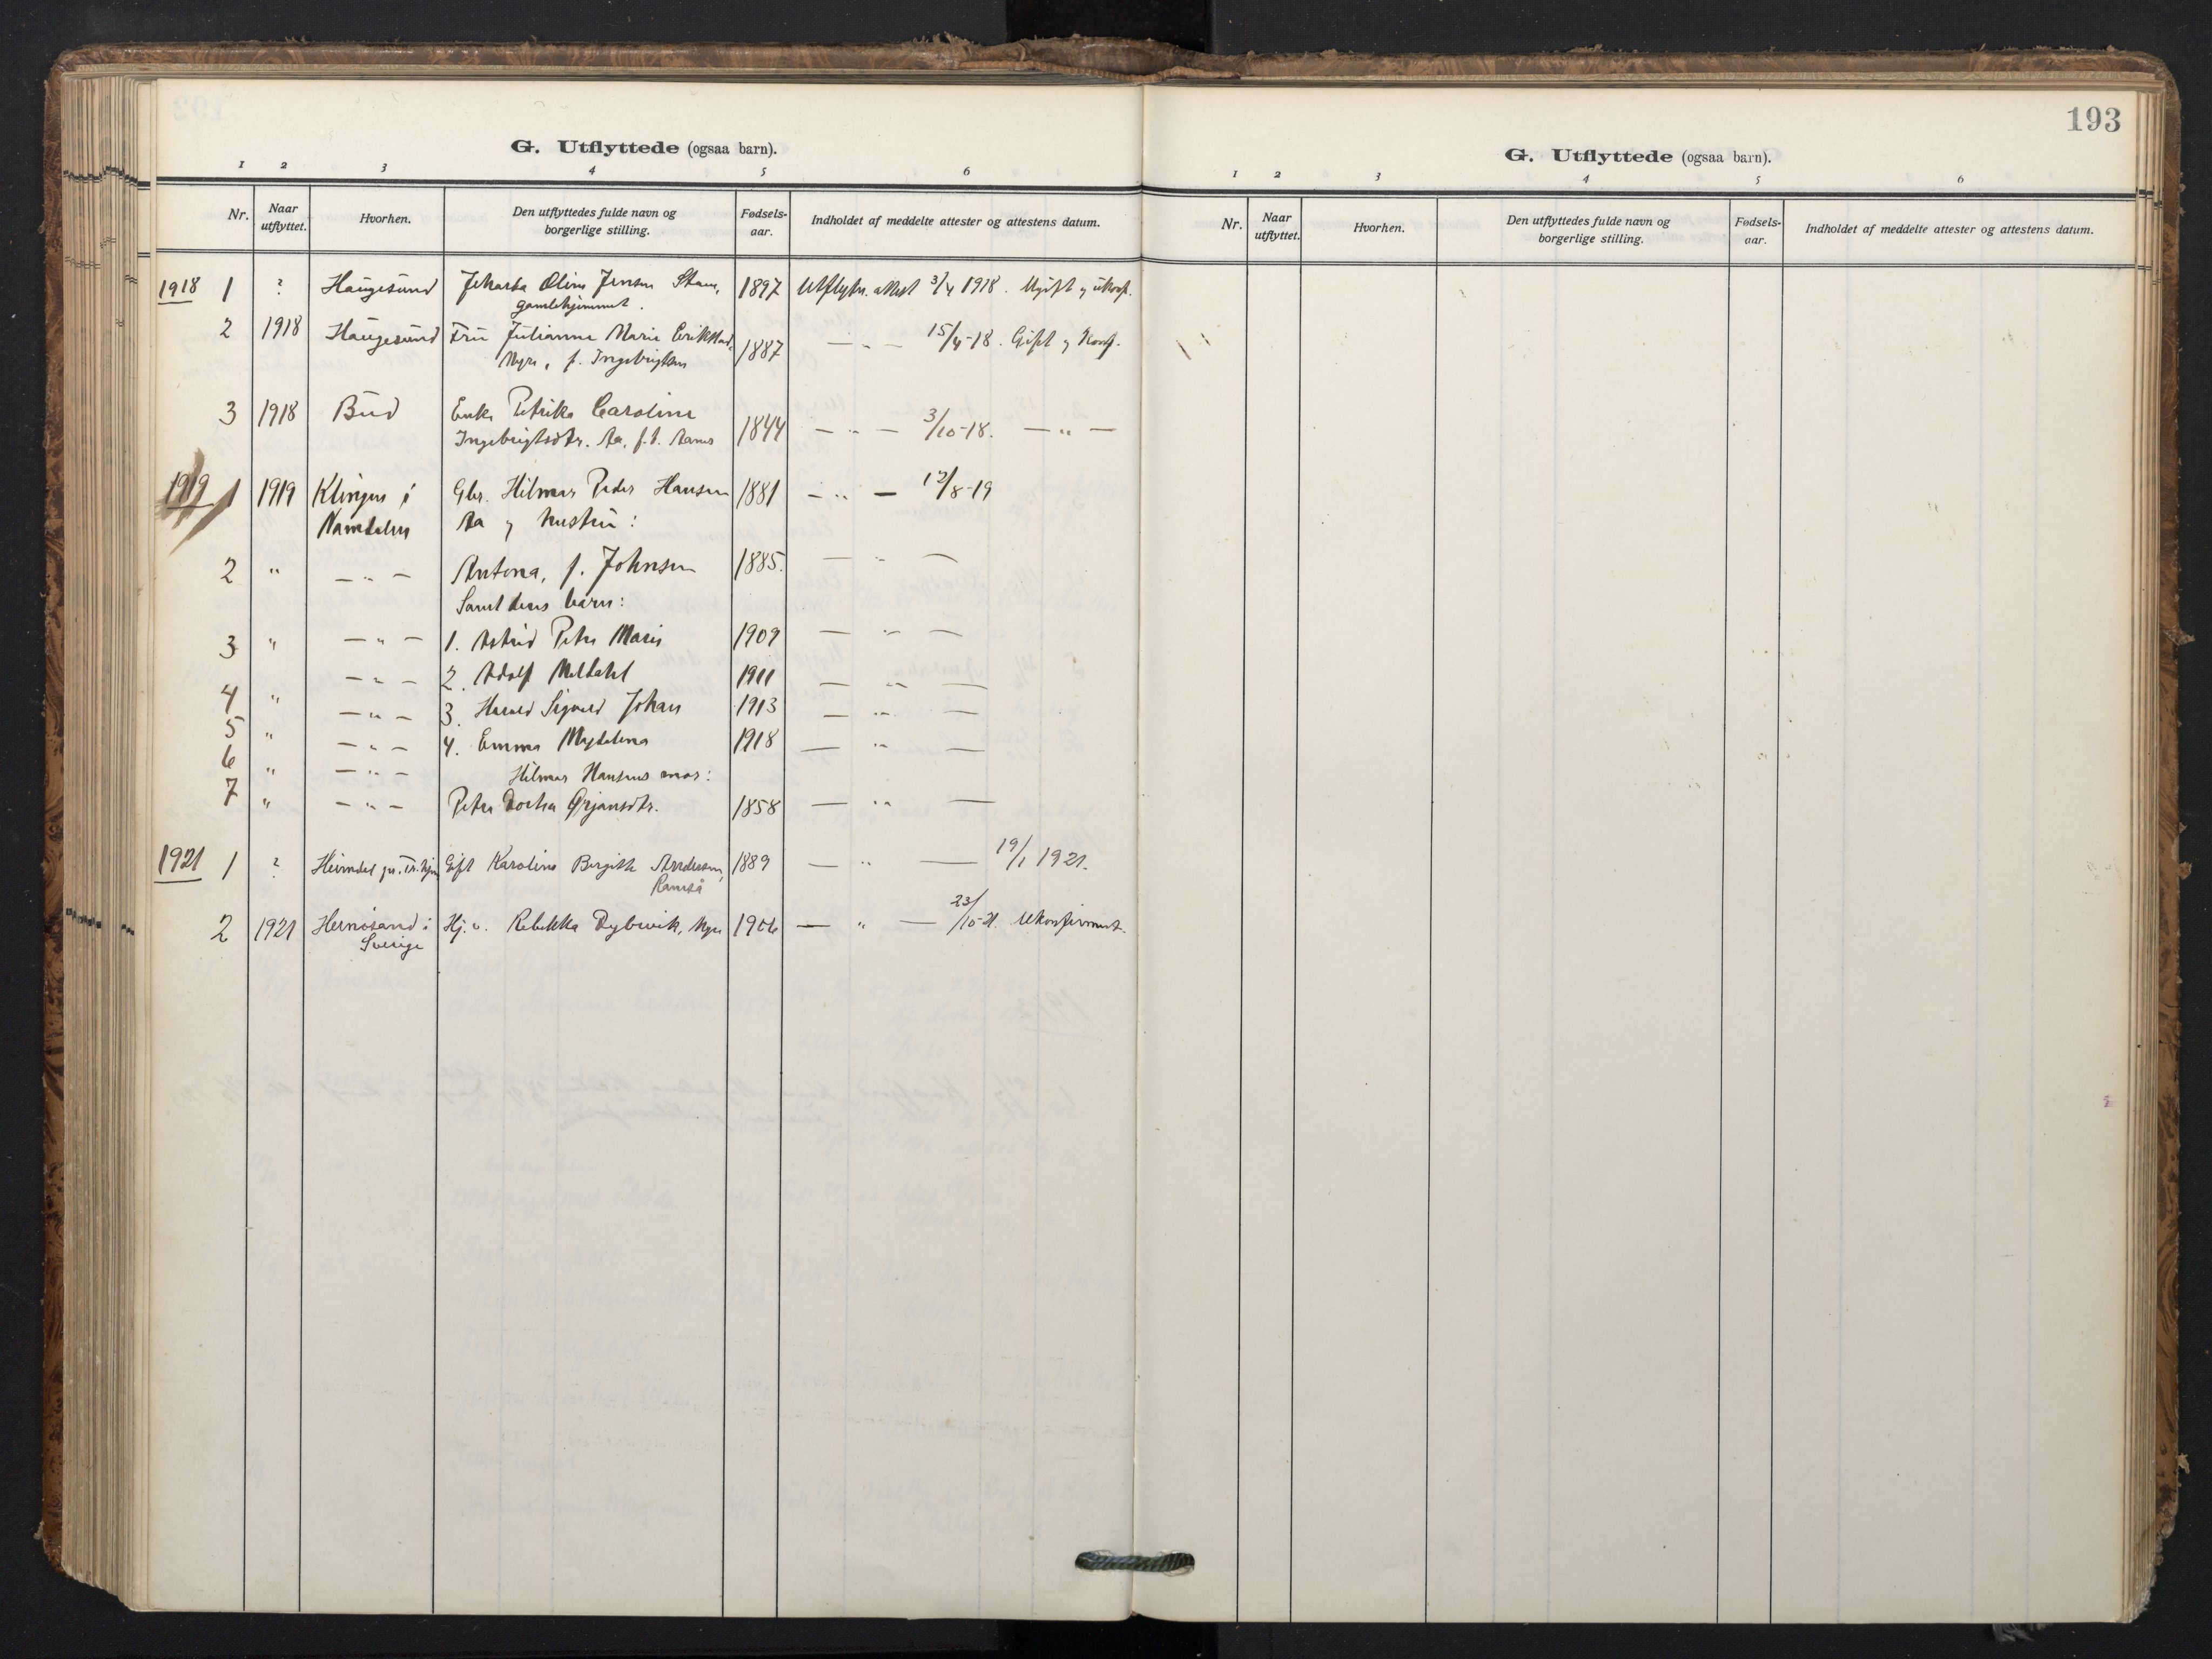 193
G. Utflyttede (ogsaa barn).
1 2 3 4 5 6
Nr. Naar utflyttet. Hvorhen. Den utflyttedes fulde navn og borgerlige stilling. Fødsels-aar. Indholdet af meddelte attester og attestens datum.
1918 1 ? Haugesund Oline Jensen 1897 Utflytn. attest 3/4 1918. Ugift og
gamlehjemmet.
2 1918 Haugesund Fru Julianne Marie Erikstad, 1887 — " — 15/4-18. Gift og Konf.
f. Ingebrigtsen
3 1918 Bud Enke Petrika Caroline
Ingebrigtsdtr. Aa, 1844 — " — 3/10-18. — " —
1919 1 1919 Klingen i Gbr. Hilmar Peder Hansen 1881 — " — 12/8-19
Namdalen Aa og hustru:
2 " — " — Antona, f. Johnsen 1885. — " —
Samt deres barn:
3 " — " — 1. Astrid Petra Marie 1909 — " —
4 " — " — 2. Adolf Meldahl 1911 — " —
5 " — " — 3. Harald Sigurd Johan 1913 — " —
6 " — " — 4. Emma Magdalena 1918 — " —
Hilmar Hansens mor:
7 " — " — Petra Dortea Ørjansdtr. 1858 — " —
1921 1 ? Heimdal pr. Tr.hjm Gift Karoline Bergitte Andersen, 1889 — " — 19/1 1921.
Ramså
2 1921 Hernösand i Hj. v. Rebekka Dybwik, 1906 — " — 23/10-21. Ukonfirmert.
Sverige
G. Utflyttede (ogsaa barn).
1 2 3 4 5 6
Nr. Naar utflyttet. Hvorhen. Den utflyttedes fulde navn og borgerlige stilling. Fødsels-aar. Indholdet af meddelte attester og attestens datum.